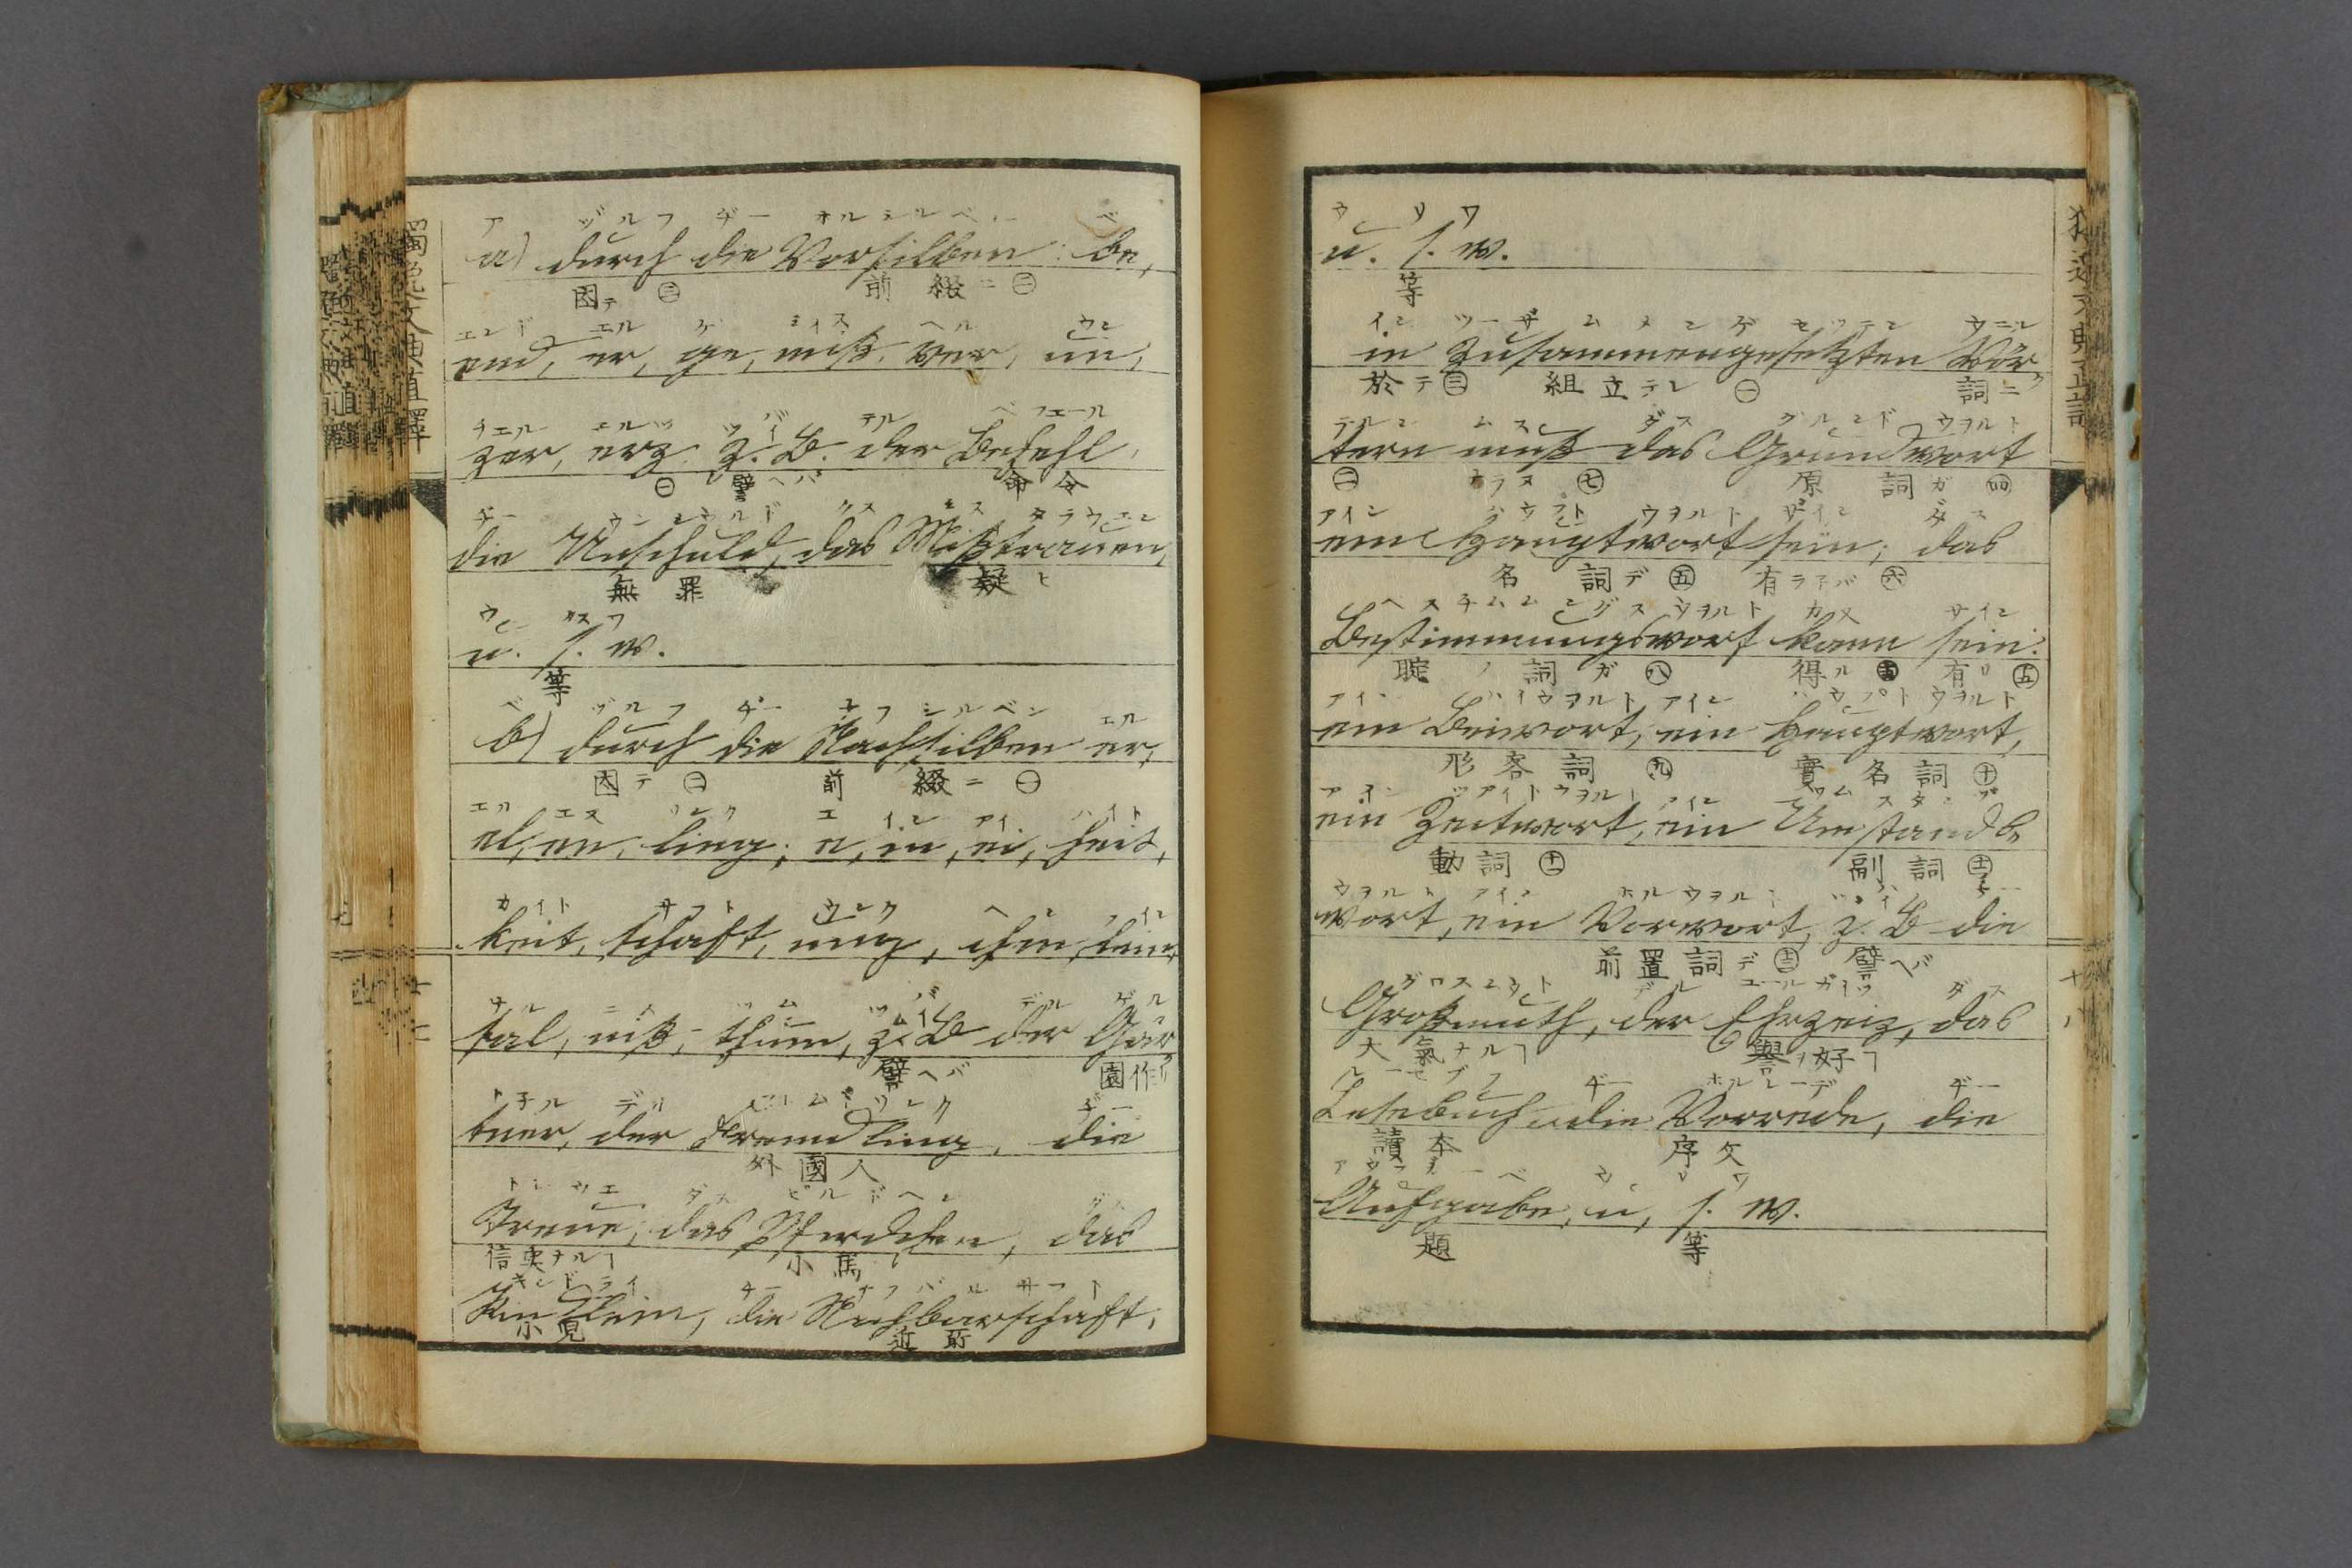 ア ヅルフ ヂー ホルシルベン ベ
a) durch die Vorsilben: be,
因テ ㊂ 前綴ニ ㊁
エンド エル ゲ ミイス ヘル ウン
end, er, ge, miß, ver, un,
チエル エルツ ツバイ デル ベフエール
zer, erz. z. B. der Befehl,
㊀ 譬ヘバ 命令
die Unschuld, das Mißtrauen,
無罪 疑ヒ
u. s. w.
等
ベ ヅルフ ヂー ナフシルベン エル
b) durch die Nachsilben er,
因テ ㊁ 前綴ニ ㊀
el, en, ling; e, in, ei, heit,
カイト サフト ウンク ヘン
keit, schaft, ung, chen, lein,
sal, niß, thum, z. B. der Gär
譬ヘバ 園作
tner, der Fremdling, die
外國人
Treue, das Pferdchen, das
信実ナルヿ 小馬
Kindlein, die Nachbarschaft,
小児 近所
獨逸文典直譯
ウ ソ ワ
u. s. w.
等
イン ツーザムメンゲセツテン ウヱル
in zusammengesetzten Wör
於テ ㊂ 組立テレ ㊀ 詞ニ
テルン ムス ダス グルンド ウヲルト
tern muß das Grundwort
㊁ ナラヌ ㊆ 原詞ガ ㊃
アイン ハウプト ウヲルト ザイン ダス
ein Hauptwort sein; das
名詞デ ㊄ 有ラネバ ㊅
ベスチムムングスウヲルト カン サイン
Bestimmungswort kann sein:
詞ガ ㊇ 得ル 有リ
アイン バイウヲルト アイン ハウプトウヲルト
ein Beiwort, ein Hauptwort,
形容詞 ㊈ 實名詞 ㊉
アイン ツアイトウヲルト アイン ウムスタンド
ein Zeitwort, ein Umstands
動詞 副詞
ウヲルト アイン ホルウヲルト ツバイ ヂー
wort, ein Vorwort, z. B. die
前置詞デ 譬ヘバ
グロスムウト デル エールガイツ ダス
Großmuth, der Ehrgeiz, das
大氣ナルヿ 譽ヲ好ヿ
レーセブフ ヂー ホルレーデ ヂー
Lesebuch, die Vorrede, die
讀本 序文
Aufgabe, u. s. w.
題 等